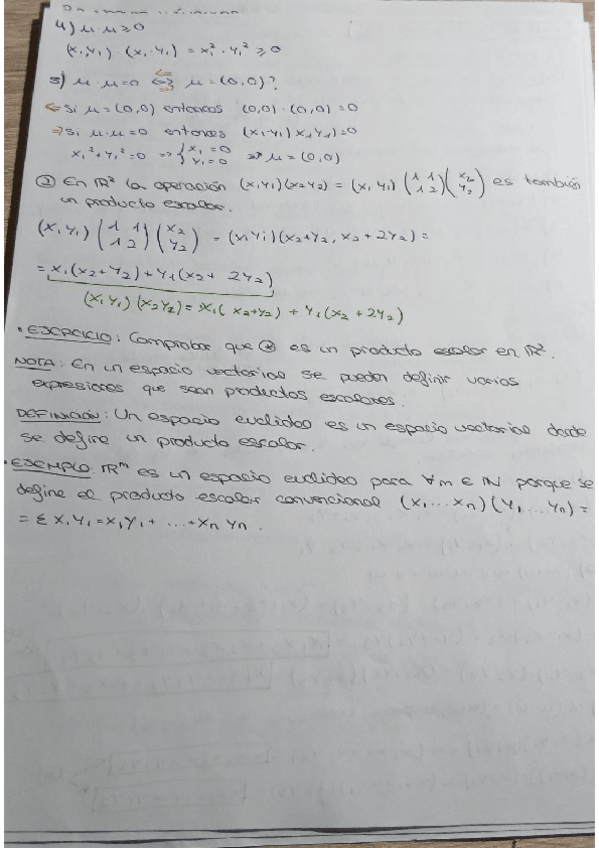 4) μ·μ ≥ 0
(x₁y₁)·(x₁·y₁) = x₁²·y₁² ≥ 0
5) μ·μ=0 <=> μ=(0,0)?
<= Si μ=(0,0) entonces (0,0)·(0,0)=0
=> Si μ·μ=0 entonces (x₁·y₁)x₁y₁)=0
x₁²+y₁²=0 => { x₁=0 y₁=0 => μ=(0,0)
② En ℝ² la operación (x₁y₁)(x₂y₂) = (x₁ y₁) (1 1 1 2) (x₂ y₂) es también
un producto escalar.
(x₁y₁) (1 1 1 2) (x₂ y₂) = (x₁y₁)(x₂+y₂, x₂+2y₂) =
= x₁(x₂+y₂)+y₁(x₂+ 2y₂)
(x₁y₁)(x₂y₂) = x₁(x₂+y₂) + y₁(x₂+2y₂)
• EJERCICIO: Comprobar que ② es un producto escalar en ℝ².
NOTA: En un espacio vectorial se pueden definir varias
expresiones que sean productos escalares.
DEFINICIÓN: Un espacio euclídeo es un espacio vectorial donde
se define un producto escalar.
• EJEMPLO: ℝᵐ es un espacio euclídeo para ∀m∈ℕ porque se
define el producto escalar convencional (x₁...xₙ)(y₁...yₙ)=
= Σ x₁y₁=x₁y₁+ ...+xₙyₙ.